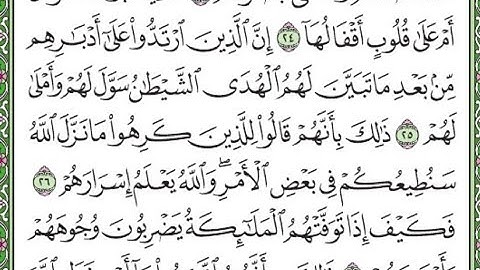 أَمْ عَلَىٰ قُلُوبٍ أَقْفَالُهَآ ٢٤ إِنَّ ٱلَّذِينَ ٱرْتَدُّوا۟ عَلَىٰٓ أَدْبَٰرِهِم
مِّنۢ بَعْدِ مَا تَبَيَّنَ لَهُمُ ٱلْهُدَى ٱلشَّيْطَٰنُ سَوَّلَ لَهُمْ وَأَمْلَىٰ
لَهُمْ ٢٥ ذَٰلِكَ بِأَنَّهُمْ قَالُوا۟ لِلَّذِينَ كَرِهُوا۟ مَا نَزَّلَ ٱللَّهُ
سَنُطِيعُكُمْ فِى بَعْضِ ٱلْأَمْرِ ۖ وَٱللَّهُ يَعْلَمُ إِسْرَارَهُمْ ٢٦
فَكَيْفَ إِذَا تَوَفَّتْهُمُ ٱلْمَلَٰٓئِكَةُ يَضْرِبُونَ وُجُوهَهُمْ